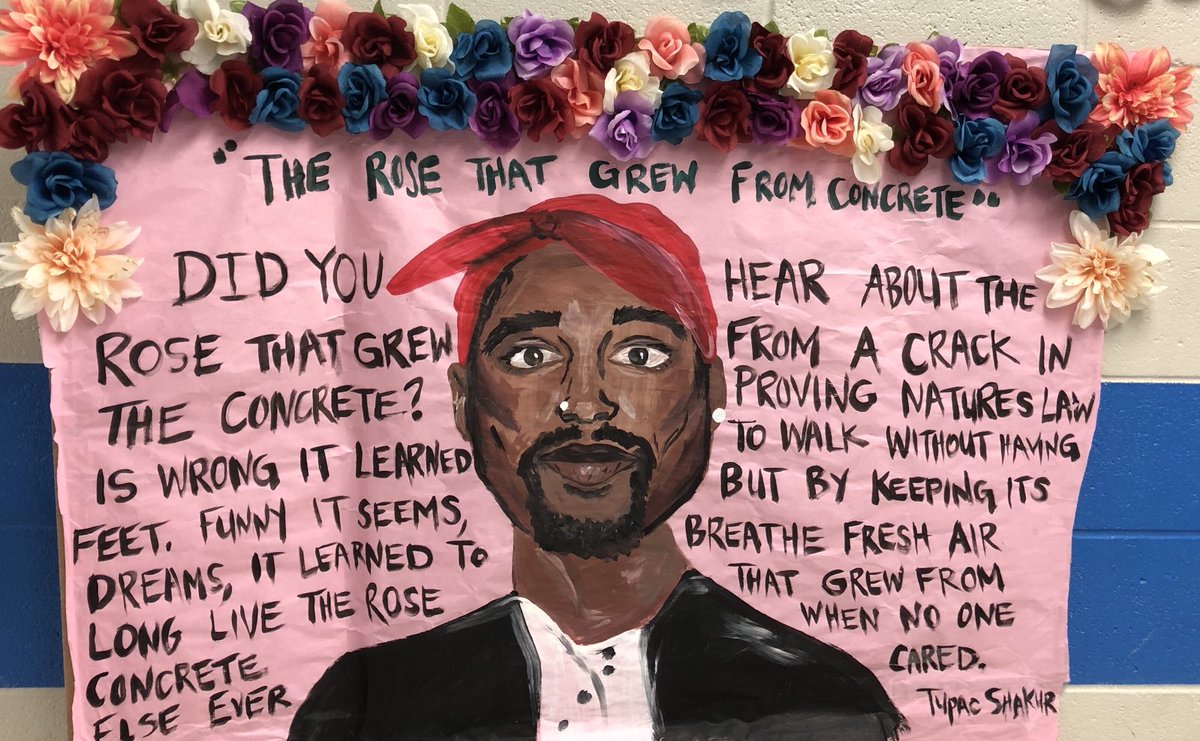 "THE ROSE THAT GREW FROM CONCRETE"
DID YOU HEAR ABOUT THE
ROSE THAT GREW FROM A CRACK IN
THE CONCRETE? PROVING NATURES LAW
IS WRONG IT LEARNED TO WALK WITHOUT HAVING
FEET. FUNNY IT SEEMS, BUT BY KEEPING ITS
DREAMS, IT LEARNED TO BREATHE FRESH AIR
LONG LIVE THE ROSE THAT GREW FROM
CONCRETE WHEN NO ONE
ELSE EVER CARED.
TUPAC SHAKUR